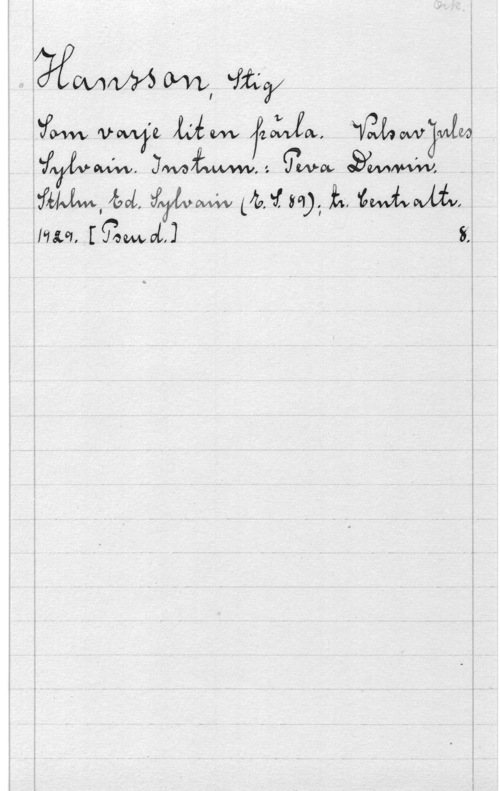 Ork.
Hansson, Stig
Som varje liten pärla. Vals av Jules
Sylvain. Instrum.: Teva Derwin.
Sthlm, Ed. Sylvain (E. S. 89); tr. Centraltr.
1929. [Pseud.] 8.